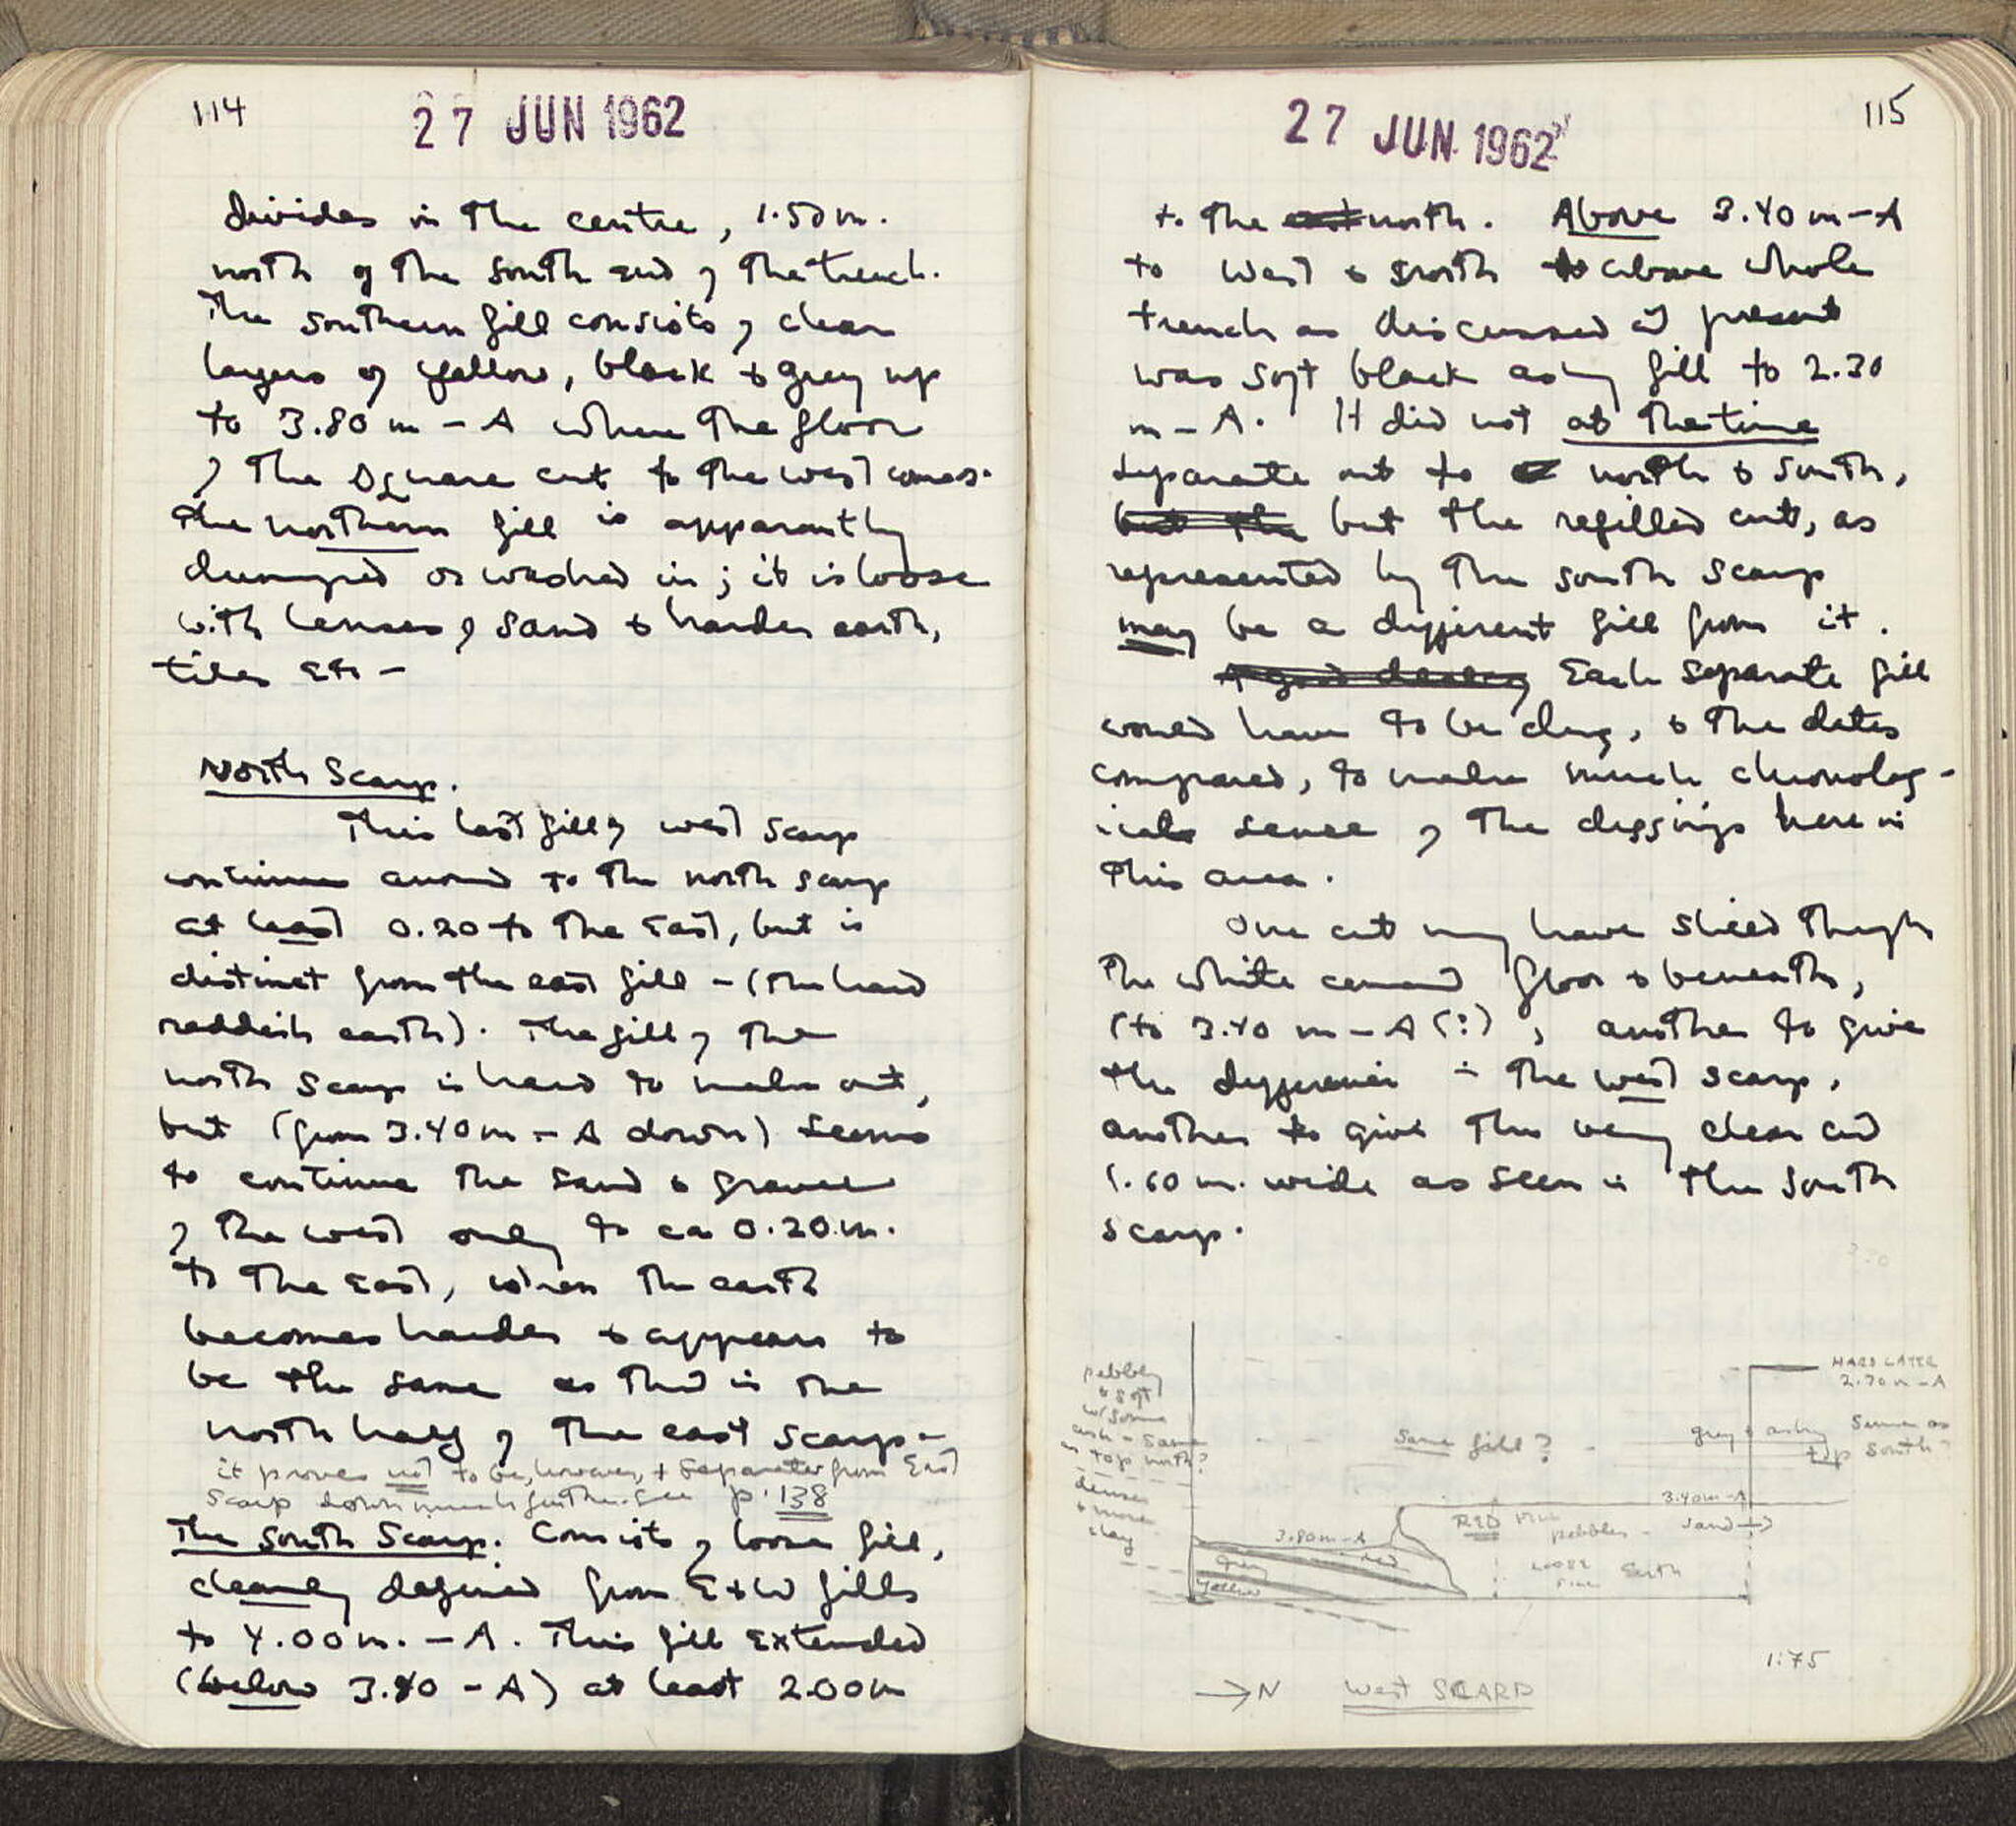 114
27 JUN 1962
divides in the centre, 1.50 m.
north of the south end of the trench.
The southern fill consists of clear
layers of yellow, black & grey up
to 3.80 m - A where the floor
of the square cut to the west comes.
The northern fill is apparently
dumped or washed in; it is loose
with lenses of sand & harder earth,
tiles etc -
North Scarp.
This last fill of west scarp
continues around to the north scarp
at least 0.20 to the East, but is
distinct from the east fill - (the hard
reddish earth). The fill of the
north scarp is hard to make out,
but (from 3.40 m - A down) seems
to continue the sand & gravel
of the west only to ca 0.20 m.
to the East, when the earth
becomes harder & appears to
be the same as that in the
north half of the east scarp -
it proves not to be, however, & separates from East
scarp down much further. See p. 138
The South Scarp. Consists of loose fill,
clearly defined from E & W fills
to 4.00 m. - A. This fill extended
(below 3.80 - A) at least 2.00 m
115
27 JUN 1962
to the east north. Above 3.40 m - A
to west & north & above whole
trench as discussed at present
was soft black ashy fill to 2.30
m - A. It did not at the time
separate out to north & south,
but the but the refilled cut, as
represented by the south scarp
may be a different fill from it.
Each separate fill
would have to be dug, & the dates
compared, to make much chronolog-
ical sense of the diggings here in
this area.
One cut may have sliced through
the white cement floor & beneath,
(to 3.40 m - A (?), another to give
the difference in the west scarp,
another to give the very clear cut
1.60 m. wide as seen in the South
scarp.
pebbly
& soft
w/ some
ash - same
as top north?
denser
& more
clay
Same fill?
HARD LAYER
2.70 m - A
grey & ashy Same as
top South?
3.40 m - A
3.80 m - A
RED
pebbles -
sand →
grey
red
yellow
loose
fine
Earth
1:75
→ N West SCARP